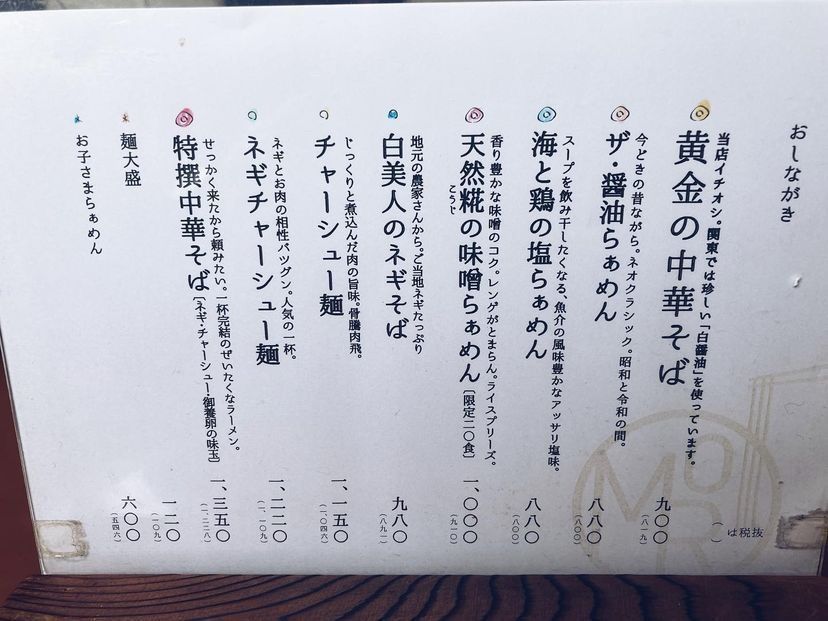 おしながき
（ ）は税抜
当店イチオシ。関東では珍しい「白醤油」を使っています。
黄金の中華そば
九〇〇
（八一九）
今どきの昔ながら。ネオクラシック。昭和と令和の間。
ザ・醤油らぁめん
八八〇
（八〇〇）
スープを飲み干したくなる、魚介の風味豊かなアッサリ塩味。
海と鶏の塩らぁめん
八八〇
（八〇〇）
香り豊かな味噌のコク。レンゲがとまらん。ライスプリーズ。
天然糀の味噌らぁめん〔限定二〇食〕
こうじ
一、〇〇〇
（九一〇）
地元の農家さんから。ご当地ネギたっぷり
白美人のネギそば
九八〇
（八九一）
じっくりと煮込んだ肉の旨味。骨騰肉飛。
チャーシュー麺
一、一五〇
（一、〇四六）
ネギとお肉の相性バツグン。人気の一杯。
ネギチャーシュー麺
一、二二〇
（一、一〇九）
せっかく来たから頼みたい。一杯完結のぜいたくなラーメン。
特撰中華そば〔ネギ・チャーシュー・御養卵の味玉〕
一、三五〇
（一、二二八）
麺大盛
一二〇
（一〇九）
お子さまらぁめん
六〇〇
（五四六）
MORI